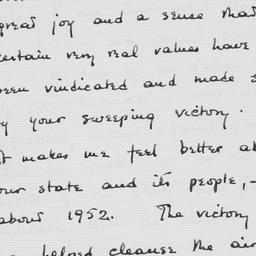 great joy and a sense that
certain very real values have
been vindicated and made s
by your sweeping victory.
It makes me feel better ab
our state and its people, -
about 1952. The victory
helped cleanse the air